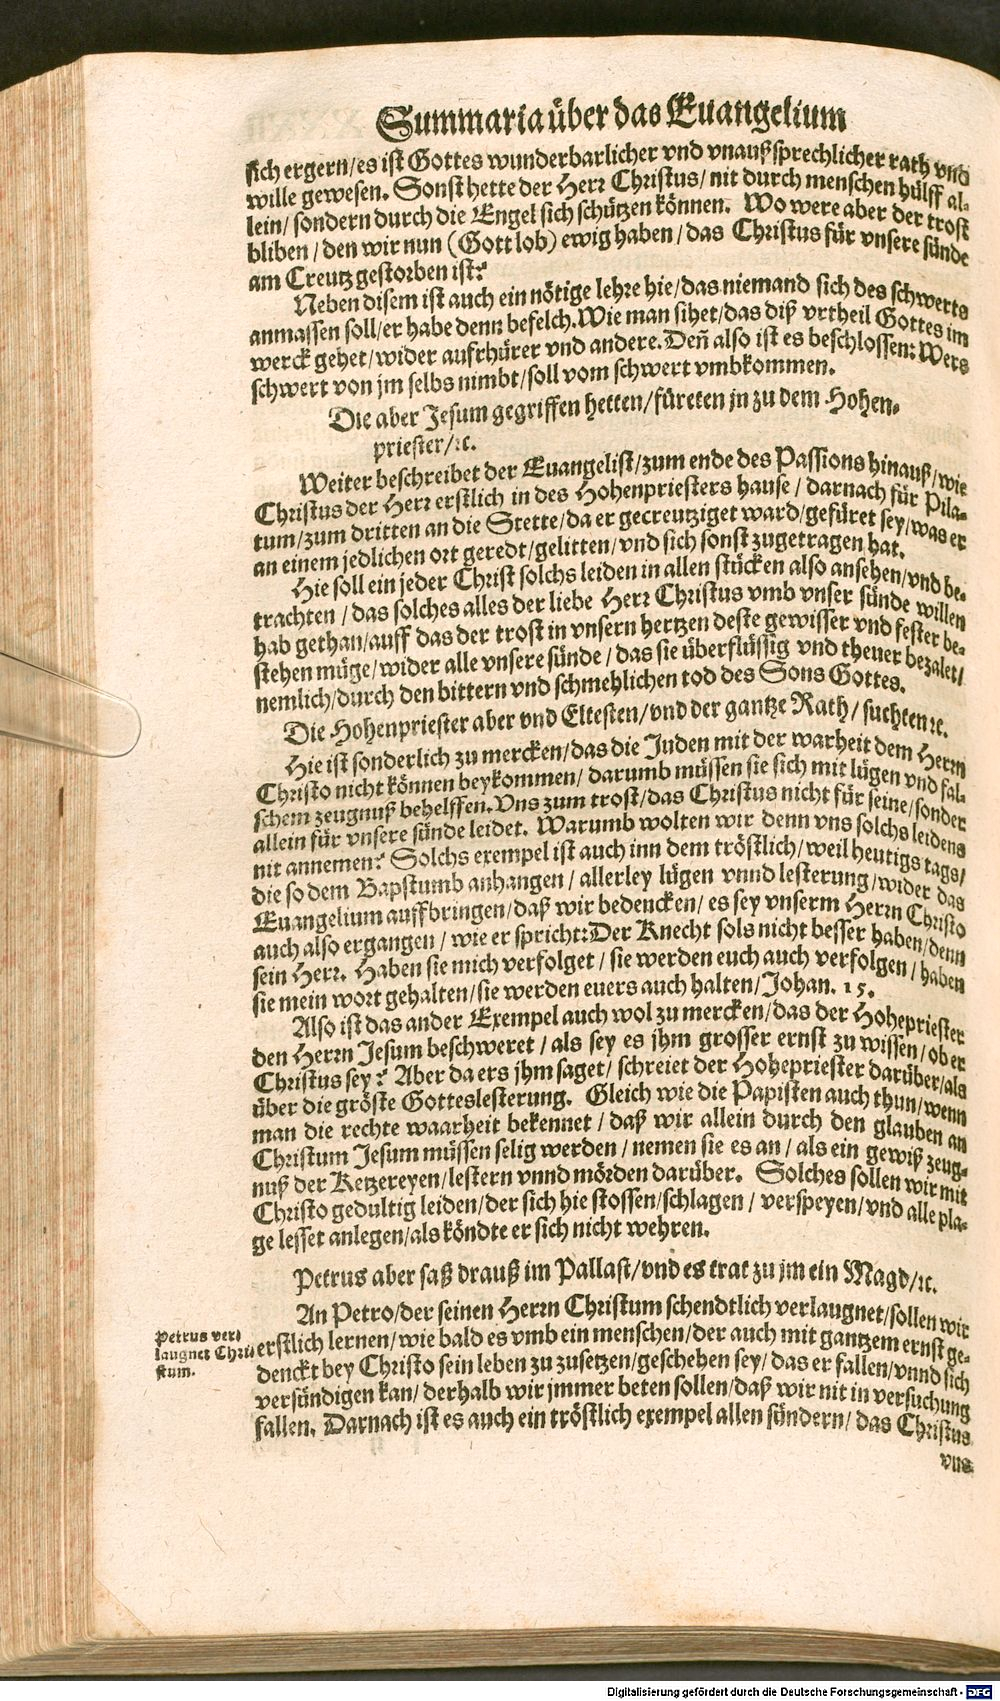 Summaria über das Euangelium
sich ergern/es ist Gottes wunderbarlicher vnd vnaußsprechlicher rath vnd
wille gewesen. Sonst hette der Herr Christus/ nit durch menschen hülff al-
lein/ sondern durch die Engel sich schützen können. Wo were aber der trost
bliben/ den wir nun (Gott lob) ewig haben/ das Christus für vnsere sünde
am Creutz gestorben ist?
Neben disem ist auch ein nötige lehre hie/das niemand sich des schwerts
anmassen soll/er habe denn befelch. Wie man sihet/das diß vrtheil Gottes im
werck gehet/wider aufrhürer vnd andere. Deñ also ist es beschlossen: Wers
schwert von jm selbs nimbt/soll vom schwert vmbkommen.
Die aber Jesum gegriffen hetten/füreten jn zu dem Hohen-
priester/ꝛc.
Weiter beschreibet der Euangelist/zum ende des Passions hinauß/wie
Christus der Herr erstlich in des Hohenpriesters hause/ darnach für Pila-
tum/zum dritten an die Stette/da er gecreutziget ward/gefüret sey/was er
an einem jedlichen ort geredt/gelitten/vnd sich sonst zugetragen hat.
Hie soll ein jeder Christ solchs leiden in allen stücken also ansehen/vnd be-
trachten/ das solches alles der liebe Herr Christus vmb vnser sünde willen
hab gethan/auff das der trost in vnsern hertzen deste gewisser vnd fester be-
stehen müge/wider alle vnsere sünde/ das sie überflüssig vnd theuer bezalet/
nemlich/durch den bittern vnd schmehlichen tod des Sons Gottes.
Die Hohenpriester aber vnd Eltesten/vnd der gantze Rath/ suchten ꝛc.
Hie ist sonderlich zu mercken/das die Juden mit der warheit dem Herrn
Christo nicht können beykommen/ darumb müssen sie sich mit lügen vnd fal-
schem zeugnuß behelffen. Vns zum trost/das Christus nicht für seine/sonder
allein für vnsere sünde leidet. Warumb wolten wir denn vns solchs leidens
nit annemen? Solchs exempel ist auch inn dem tröstlich/weil heutigs tags/
die so dem Bapstumb anhangen/ allerley lügen vnnd lesterung/wider das
Euangelium auffbringen/daß wir bedencken/ es sey vnserm Herrn Christo
auch also ergangen/ wie er spricht: Der Knecht sols nicht besser haben/denn
sein Herr. Haben sie mich verfolget/ sie werden euch auch verfolgen/ haben
sie mein wort gehalten/sie werden euers auch halten/Johan. 15.
Also ist das ander Exempel auch wol zu mercken/das der Hohepriester
den Herrn Jesum beschweret/ als sey es jhm grosser ernst zu wissen/ob er
Christus sey? Aber da ers jhm saget/ schreiet der Hohepriester darüber/als
über die gröste Gotteslesterung. Gleich wie die Papisten auch thun/wenn
man die rechte waarheit bekennet/ daß wir allein durch den glauben an
Christum Jesum müssen selig werden/ nemen sie es an/ als ein gewiß zeug-
nuß der Ketzereyen/lestern vnnd mörden darüber. Solches sollen wir mit
Christo gedultig leiden/der sich hie stossen/schlagen/ verspeyen/vnd alle pla-
ge lesset anlegen/als köndte er sich nicht wehren.
Petrus aber saß drauß im Pallast/vnd es trat zu jm ein Magd/ꝛc.
An Petro/der seinen Herrn Christum schendtlich verlaugnet/sollen wir
Petrus ver-
laugnet Chri-
stum.
erstlich lernen/wie bald es vmb ein menschen/der auch mit gantzem ernst ge-
denckt bey Christo sein leben zu zusetzen/geschehen sey/ das er fallen/vnnd sich
versündigen kan/ derhalb wir jmmer beten sollen/daß wir nit in versuchung
fallen. Darnach ist es auch ein tröstlich exempel allen sündern/ das Christus
vns
Digitalisierung gefördert durch die Deutsche Forschungsgemeinschaft - DFG